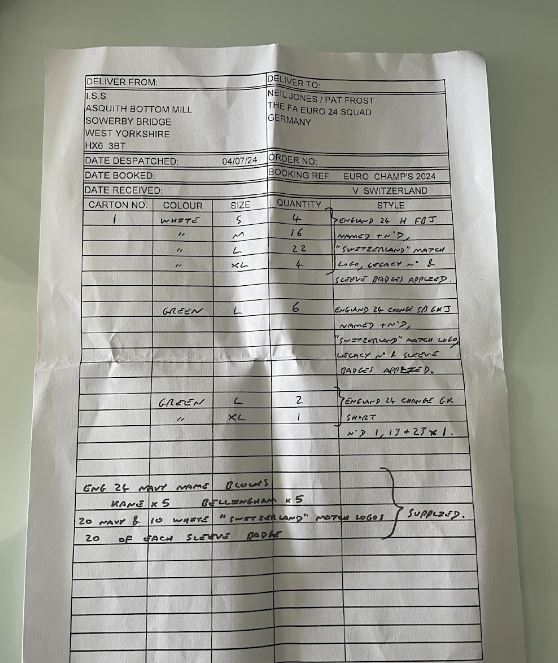 DELIVER FROM: DELIVER TO:
I.S.S. NEIL JONES / PAT FROST
ASQUITH BOTTOM MILL THE FA EURO 24 SQUAD
SOWERBY BRIDGE GERMANY
WEST YORKSHIRE
HX6 3BT
DATE DESPATCHED: 04/07/24 ORDER NO:
DATE BOOKED: BOOKING REF EURO CHAMP'S 2024
DATE RECEIVED: V SWITZERLAND
CARTON NO. COLOUR SIZE QUANTITY STYLE
1 WHITE S 4 ENGLAND 24 H FBJ
" M 16 NAMED + N°'D,
" L 22 "SWITZERLAND" MATCH
" XL 4 LOGO, LEGACY N° &
SLEEVE BADGES APPLIED.
GREEN L 6 ENGLAND 24 CHANGE S/S GKJ
NAMED + N°'D,
"SWITZERLAND" MATCH LOGO,
LEGACY N° & SLEEVE
BADGES APPLIED.
GREEN L 2 ENGLAND 24 CHANGE GK
" XL 1 SHORT
N°'D 1, 13 + 23 X 1.
ENG 24 NAVY NAME BLOCKS
KANE X 5 BELLINGHAM X 5
20 NAVY & 10 WHITE "SWITZERLAND" MATCH LOGOS SUPPLIED.
20 OF EACH SLEEVE BADGE